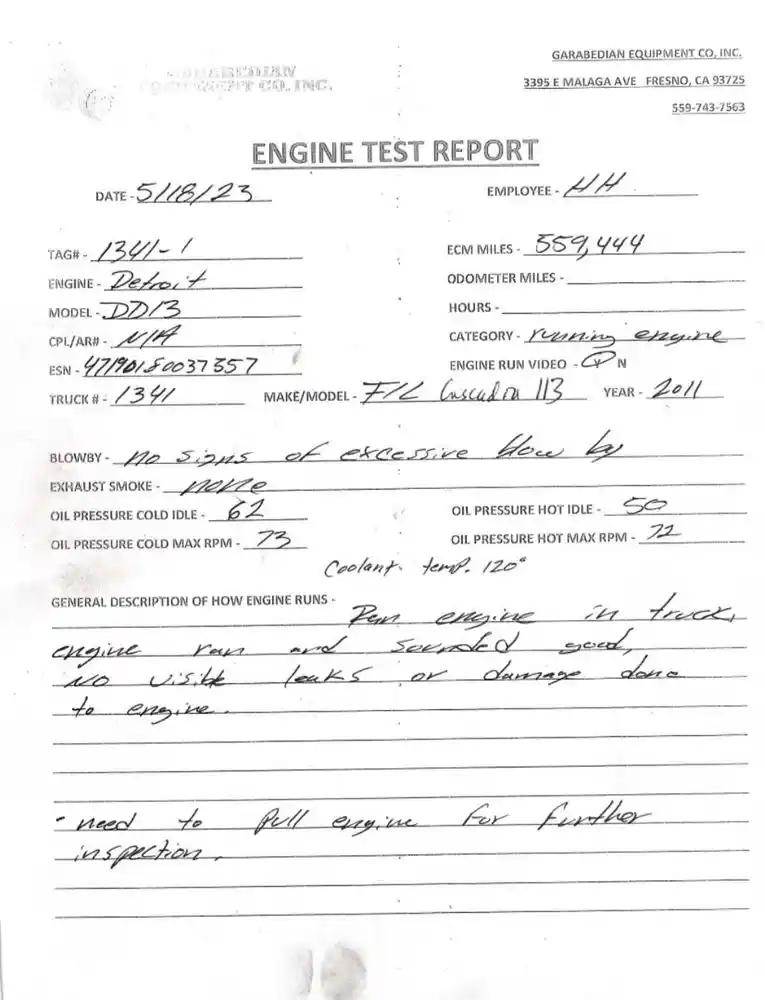 GARABEDIAN EQUIPMENT CO, INC.
GARABEDIAN
EQUIPMENT CO. INC.
3395 E MALAGA AVE FRESNO, CA 93725
559-743-7563
ENGINE TEST REPORT
DATE - 5/18/23 EMPLOYEE - HH
TAG# - 1341-1 ECM MILES - 559,444
ENGINE - Detroit ODOMETER MILES -
MODEL - DD13 HOURS -
CPL/AR# - N/A CATEGORY - running engine
ESN - 47190180037357 ENGINE RUN VIDEO - Y N
TRUCK # - 1341 MAKE/MODEL - F/L Cascadia 113 YEAR - 2011
BLOWBY - no signs of excessive blow by
EXHAUST SMOKE - none
OIL PRESSURE COLD IDLE - 62 OIL PRESSURE HOT IDLE - 50
OIL PRESSURE COLD MAX RPM - 73 OIL PRESSURE HOT MAX RPM - 72
Coolant temp. 120°
GENERAL DESCRIPTION OF HOW ENGINE RUNS -
Ran engine in truck,
engine ran and sounded good,
NO visible leaks or damage done
to engine.
- need to pull engine for further
inspection.